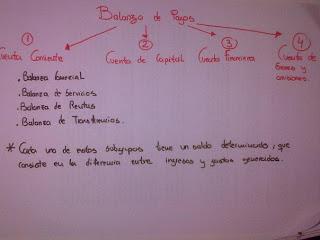 Balanza de Pagos
1
2
3
4
Cuenta Corriente
Cuenta de Capital
Cuenta Financiera
Cuenta de
Errores y
omisiones.
. Balanza Comercial
. Balanza de Servicios
. Balanza de Rentas
. Balanza de Transferencias.
* Cada uno de estos subgrupos tiene un saldo determinado, que
consiste en la diferencia entre ingresos y gastos generados.